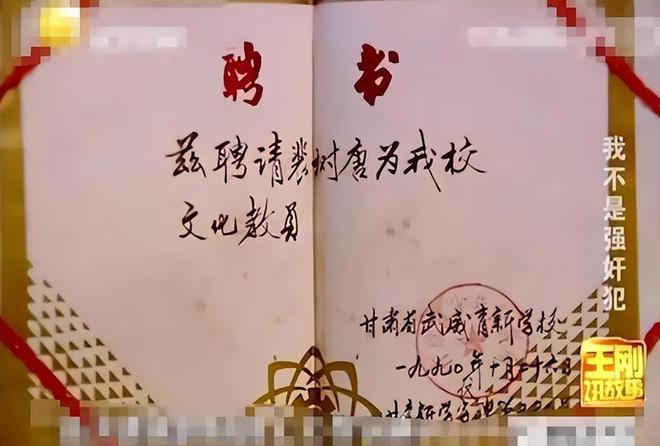 聘书
兹聘请裴树唐为我校
文化教员
甘肃省武威育新学校
一九九〇年十月二十六日
我不是强奸犯
王刚
讲故事